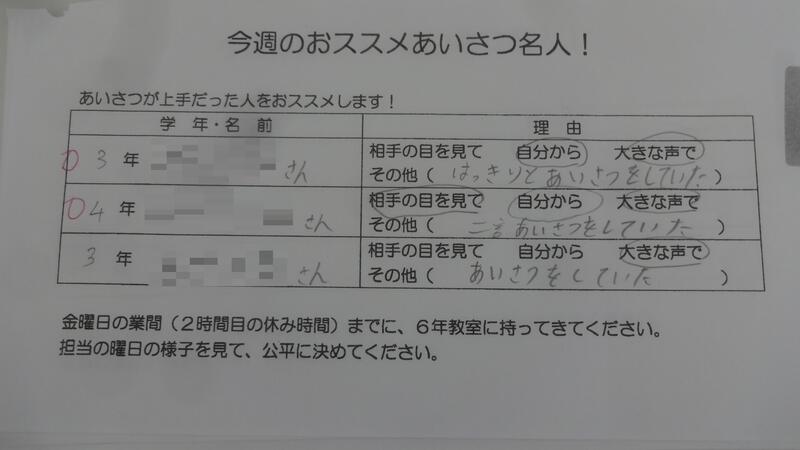 今週のおススメあいさつ名人！
あいさつが上手だった人をおススメします！
学年・名前 理由
3年 さん 相手の目を見て 自分から 大きな声で
その他（はっきりとあいさつをしていた）
4年 さん 相手の目を見て 自分から 大きな声で
その他（二言あいさつをしていた）
3年 さん 相手の目を見て 自分から 大きな声で
その他（あいさつをしていた）
金曜日の業間（２時間目の休み時間）までに、６年教室に持ってきてください。
担当の曜日の様子を見て、公平に決めてください。